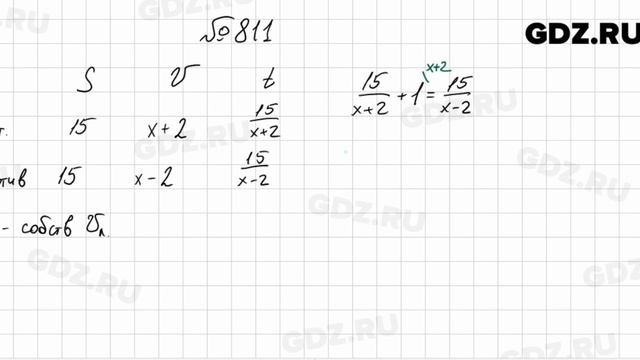 №811
GDZ.RU
S V t
т. 15 x+2 15/x+2
тив 15 x-2 15/x-2
- собств Vл.
15/x+2 + 1 = 15/x-2
x+2
GDZ.RU
GDZ.RU
GDZ.RU
GDZ.RU
GDZ.RU
GDZ.RU
GDZ.RU
GDZ.RU